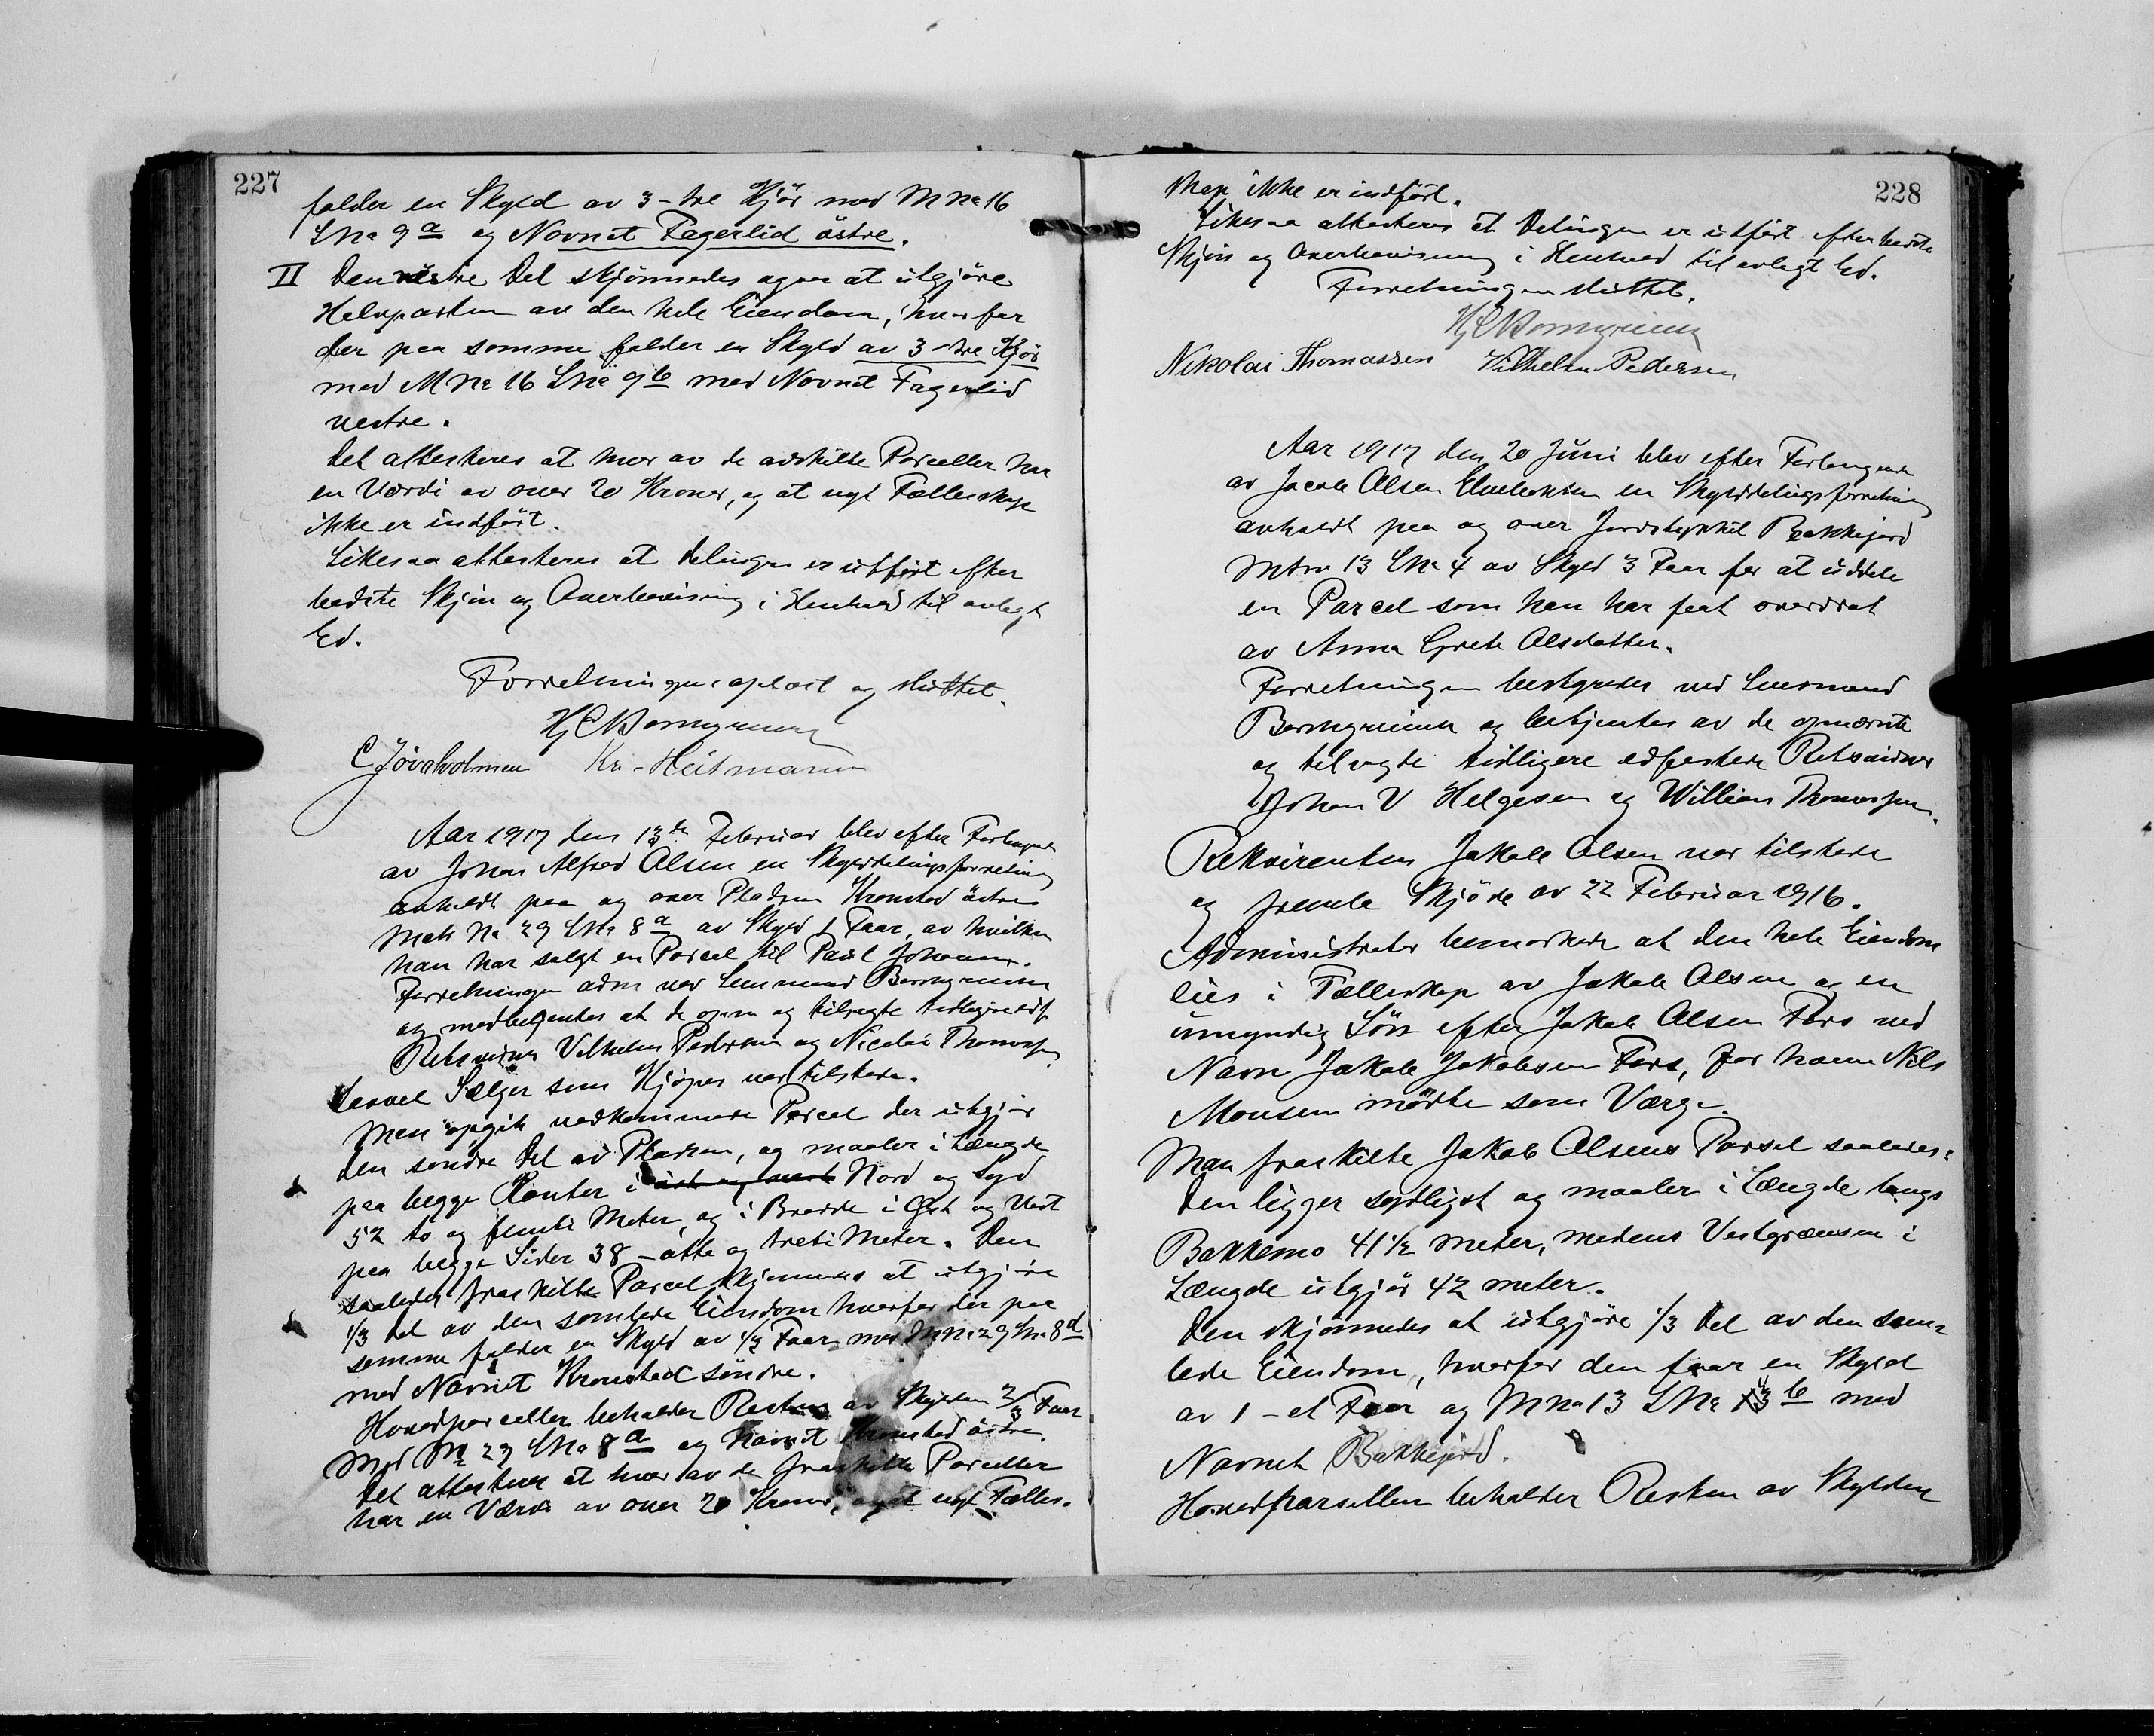 227
falder en Skyld av 3 - tre Kjör med M No 16
LNo 9a og Navnet Fagerlid östre.
II Den vestre Del skjönnedes ogsaa at utgjöre
Halvparten av den hele Eiendom, hvorfor
der paa samme falder en Skyld av 3 - tre Kjör
med M No 16 LNo 9b med Navnet Fagerlid
vestre.
Det attesteres at hver av de adskilte Parceller har
en Værdi av over 20 Kroner, og at nyt Fælleskap
ikke er indfört.
Likesaa attesteres at Delingen er utfört efter
bedste Skjön og Overbevisning i Henhold til avlagt
Ed.
Forretningen oplæst og sluttet.
Kr. Heitmann
Aar 1917 den 13de Februar blev efter Forlangende
av Johan Alfred Olsen en Skylddelingsforretning
avholdt paa og over Pladsen Kronstad östre
Matr No 29 LNo 8a av Skyld 1 Faar, av hvilken
han har solgt en Parcel til Paul Johansen.
Forretningen adm ved Lensmand
og medbetjentes at de opn og tilsagte tidligere edf
Retsvidner Vilhelm Pedersen og Nicolai Thomassen
Saavel Sælger som Kjöper var tilstede.
Man opgik vedkommende Parcel der utgjör
den söndre Del av Pladsen, og maaler i Længde
paa begge Kanter i öst og vest Nord og Syd
52 to og femti Meter, og i Bredde i Öst og Vest
paa begge Sider 38 - otte og treti Meter. Den
saaledes fraskilte Parcel skjönnes at utgjöre
1/3 Del av den samlede Eiendom hvorfor der paa
samme falder en Skyld av 1/3 Faar med MNo 29 LNo 8d
med Navnet Kronstad söndre.
Hovedparcellen beholder Resten av Skylden 2/3 Faar
med M 29 LNo 8a og Navnet Kronstad östre.
Det attesteres at hver av de fraskilte Parceller
har en Værdi av over 20 Kroner, og at nyt Fælles-
228
skap ikke er indfört.
Likesaa attesteres at Delingen er utfört efter bedste
Skjön og Overbevisning i Henhold til avlagt Ed.
Forretningen sluttet.
Nikolai Thomassen Vilhelm Pedersen
Aar 1917 den 20 Juni blev efter Forlangende
av Jacob Olsen en Skylddelingsforretning
avholdt paa og over Jordstykket Bakkejord
Mtr 13 LNo 4 av Skyld 3 Faar for at uddele
en Parcel som han har faat overdrat
av Anna Grete Olsdatter.
Forretningen bestyredes ved Lensmand
og betjentes av de opnævnte
og tilsagte tidligere edfestede Retsvidner
Johan V Helgesen og William Thomassen.
Rekvirenten Jakob Olsen var tilstede
og fremla Skjöde av 22 Februar 1916.
Administrator bemærkede at den hele Eiendom
eies i Fælleskap av Jakob Olsen og en
umyndig Sön efter Jakob Olsen Fors ved
Navn Jakob Jakobsen Fors, for ham Nils
Monsen mödte som Værge.
Man fraskilte Jakob Olsens Parsel saaledes:
Den ligger sydligst og maaler i Længde langs
Bakkemo 41 1/2 meter, medens Vestgrænsen i
Længde utgjör 42 meter.
Den skjönnedes at utgjöre 1/3 Del av den sam-
lede Eiendom, hvorfor den faar en Skyld
av 1 - et Faar og MNo 13 LNo 3b med
Navnet Bakkejord.
Hovedparsellen beholder Resten av Skylden